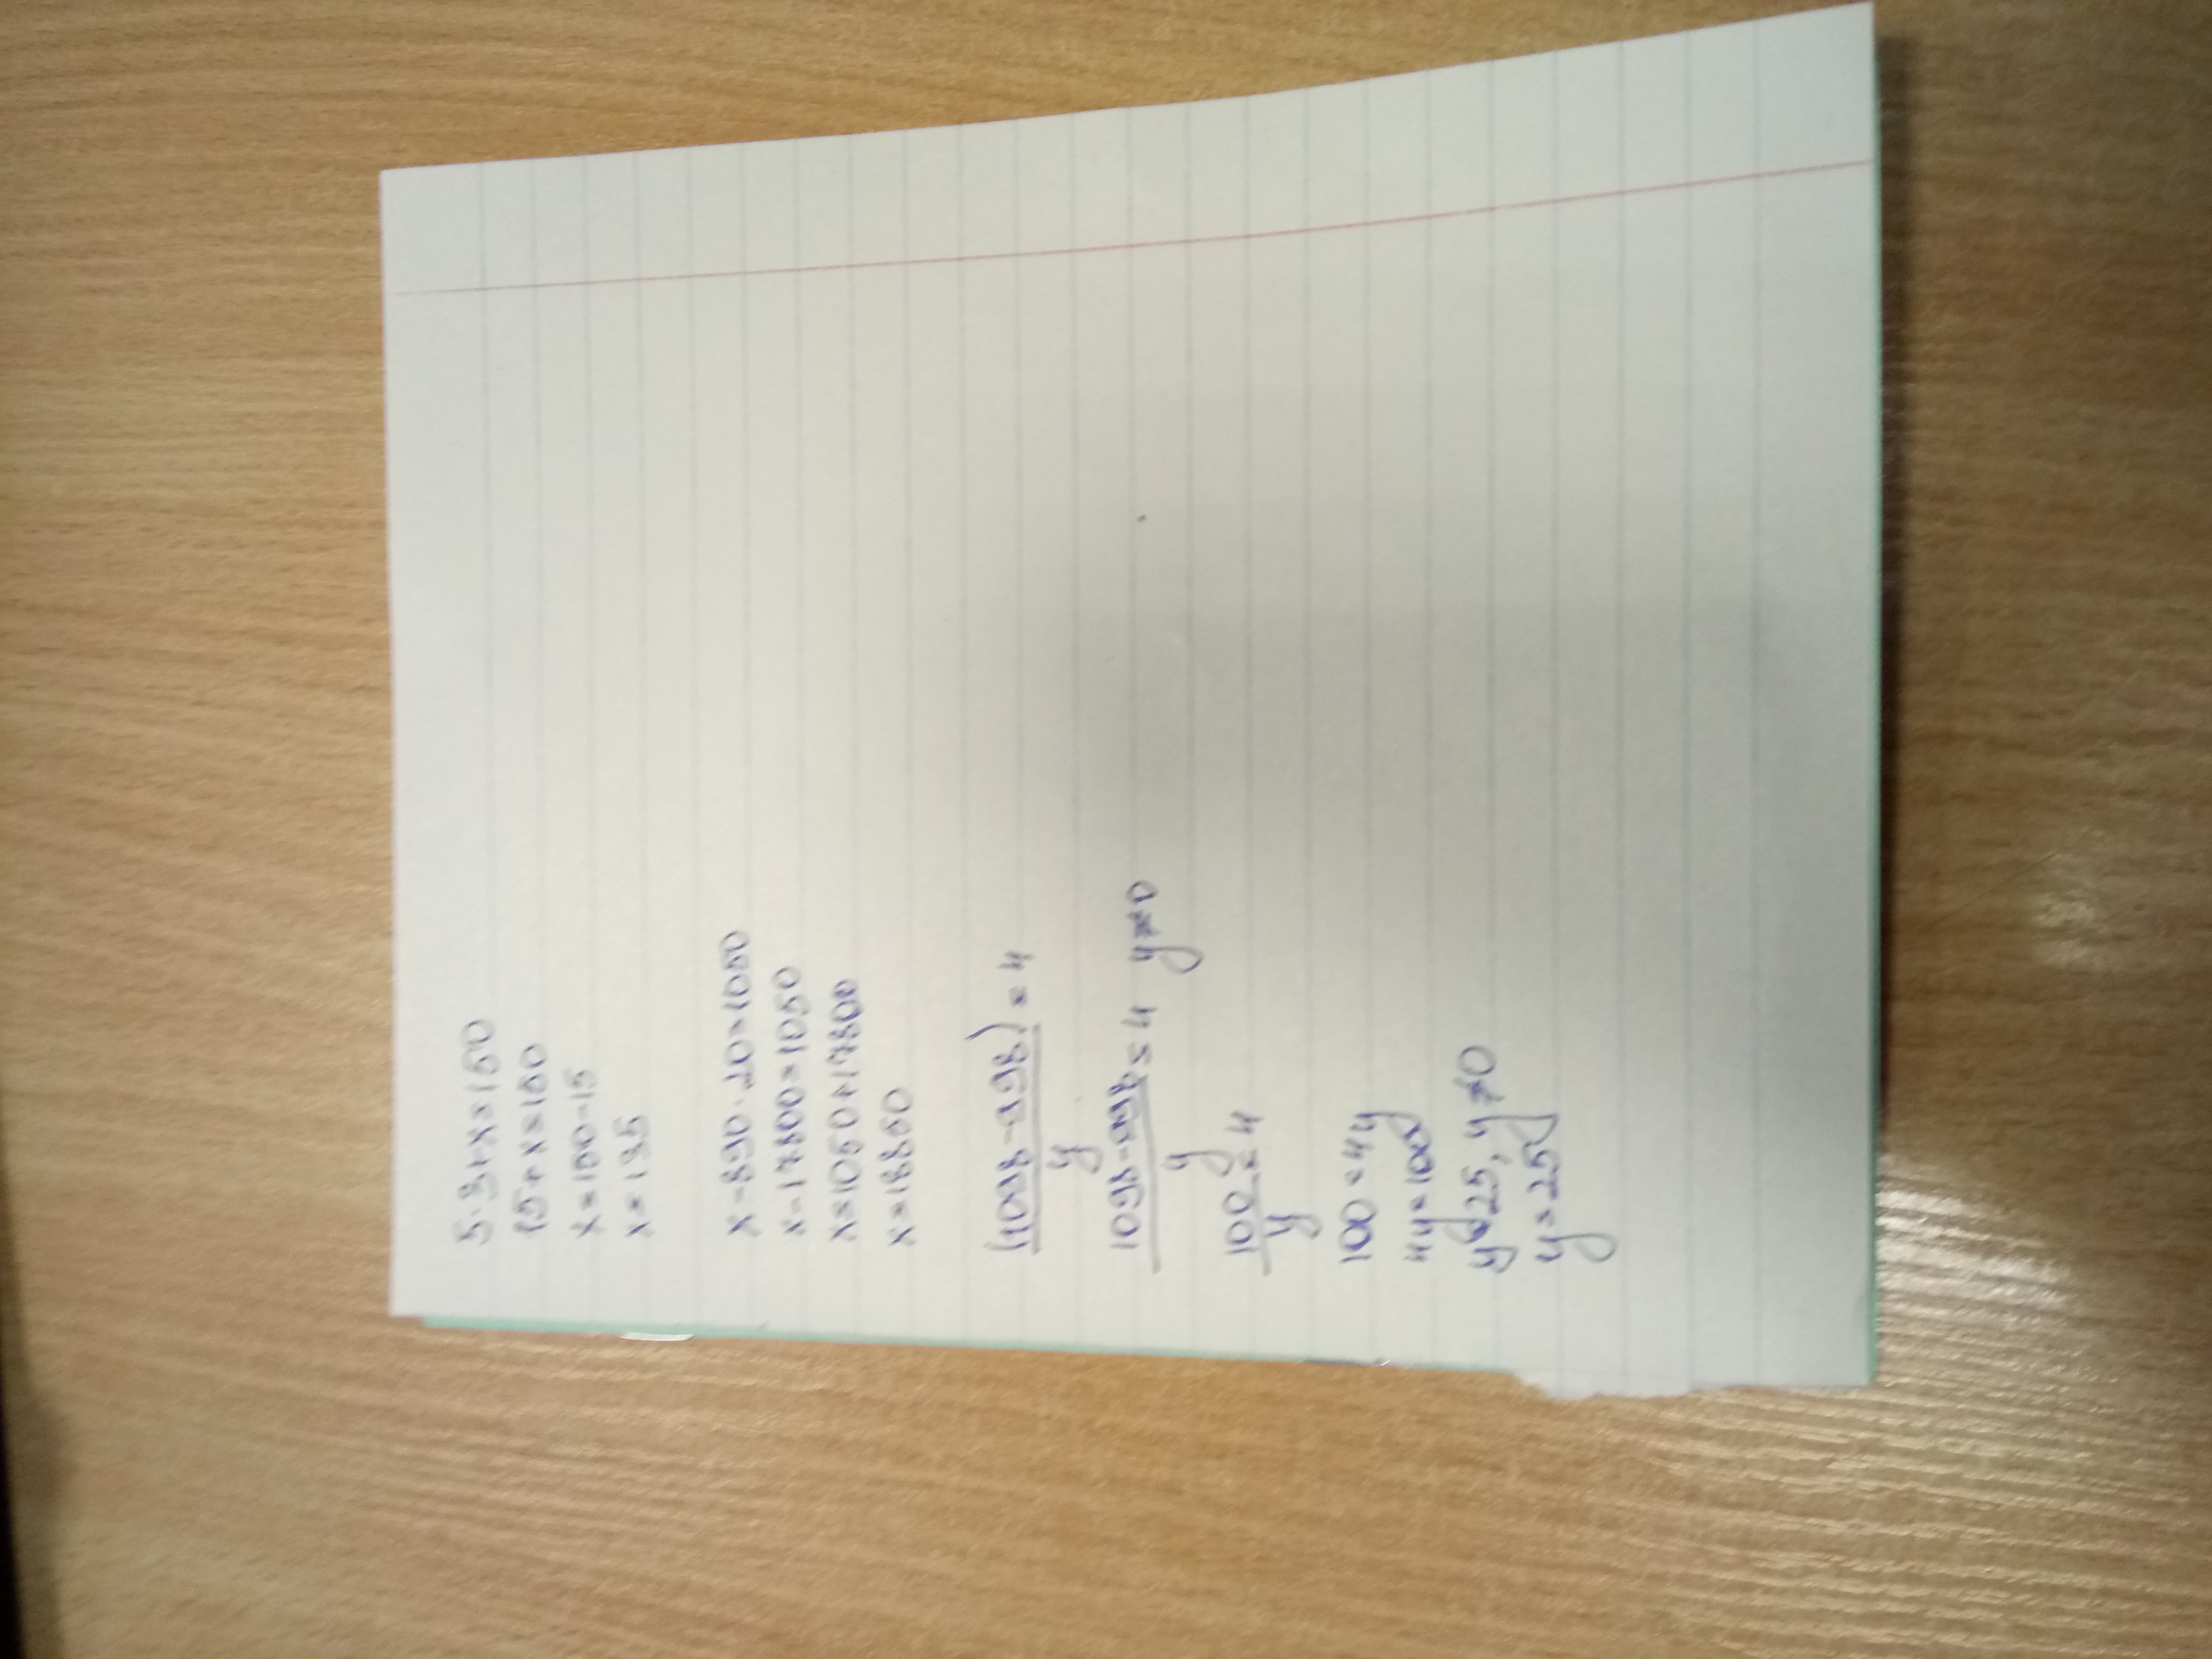 5·3+x=150
15+x=150
x=150-15
x=135
x-890·20=1050
x-17800=1050
x=1050+17800
x=18850
= 4
y
= 4 y≠0
y
100 = 4
y
100=4y
4y=100
y=25, y≠0
y=25